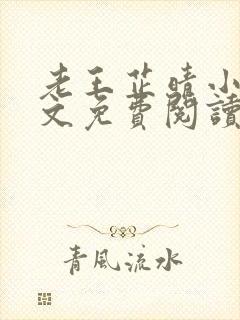 老王芷晴小
文免費閱讀
青風流水